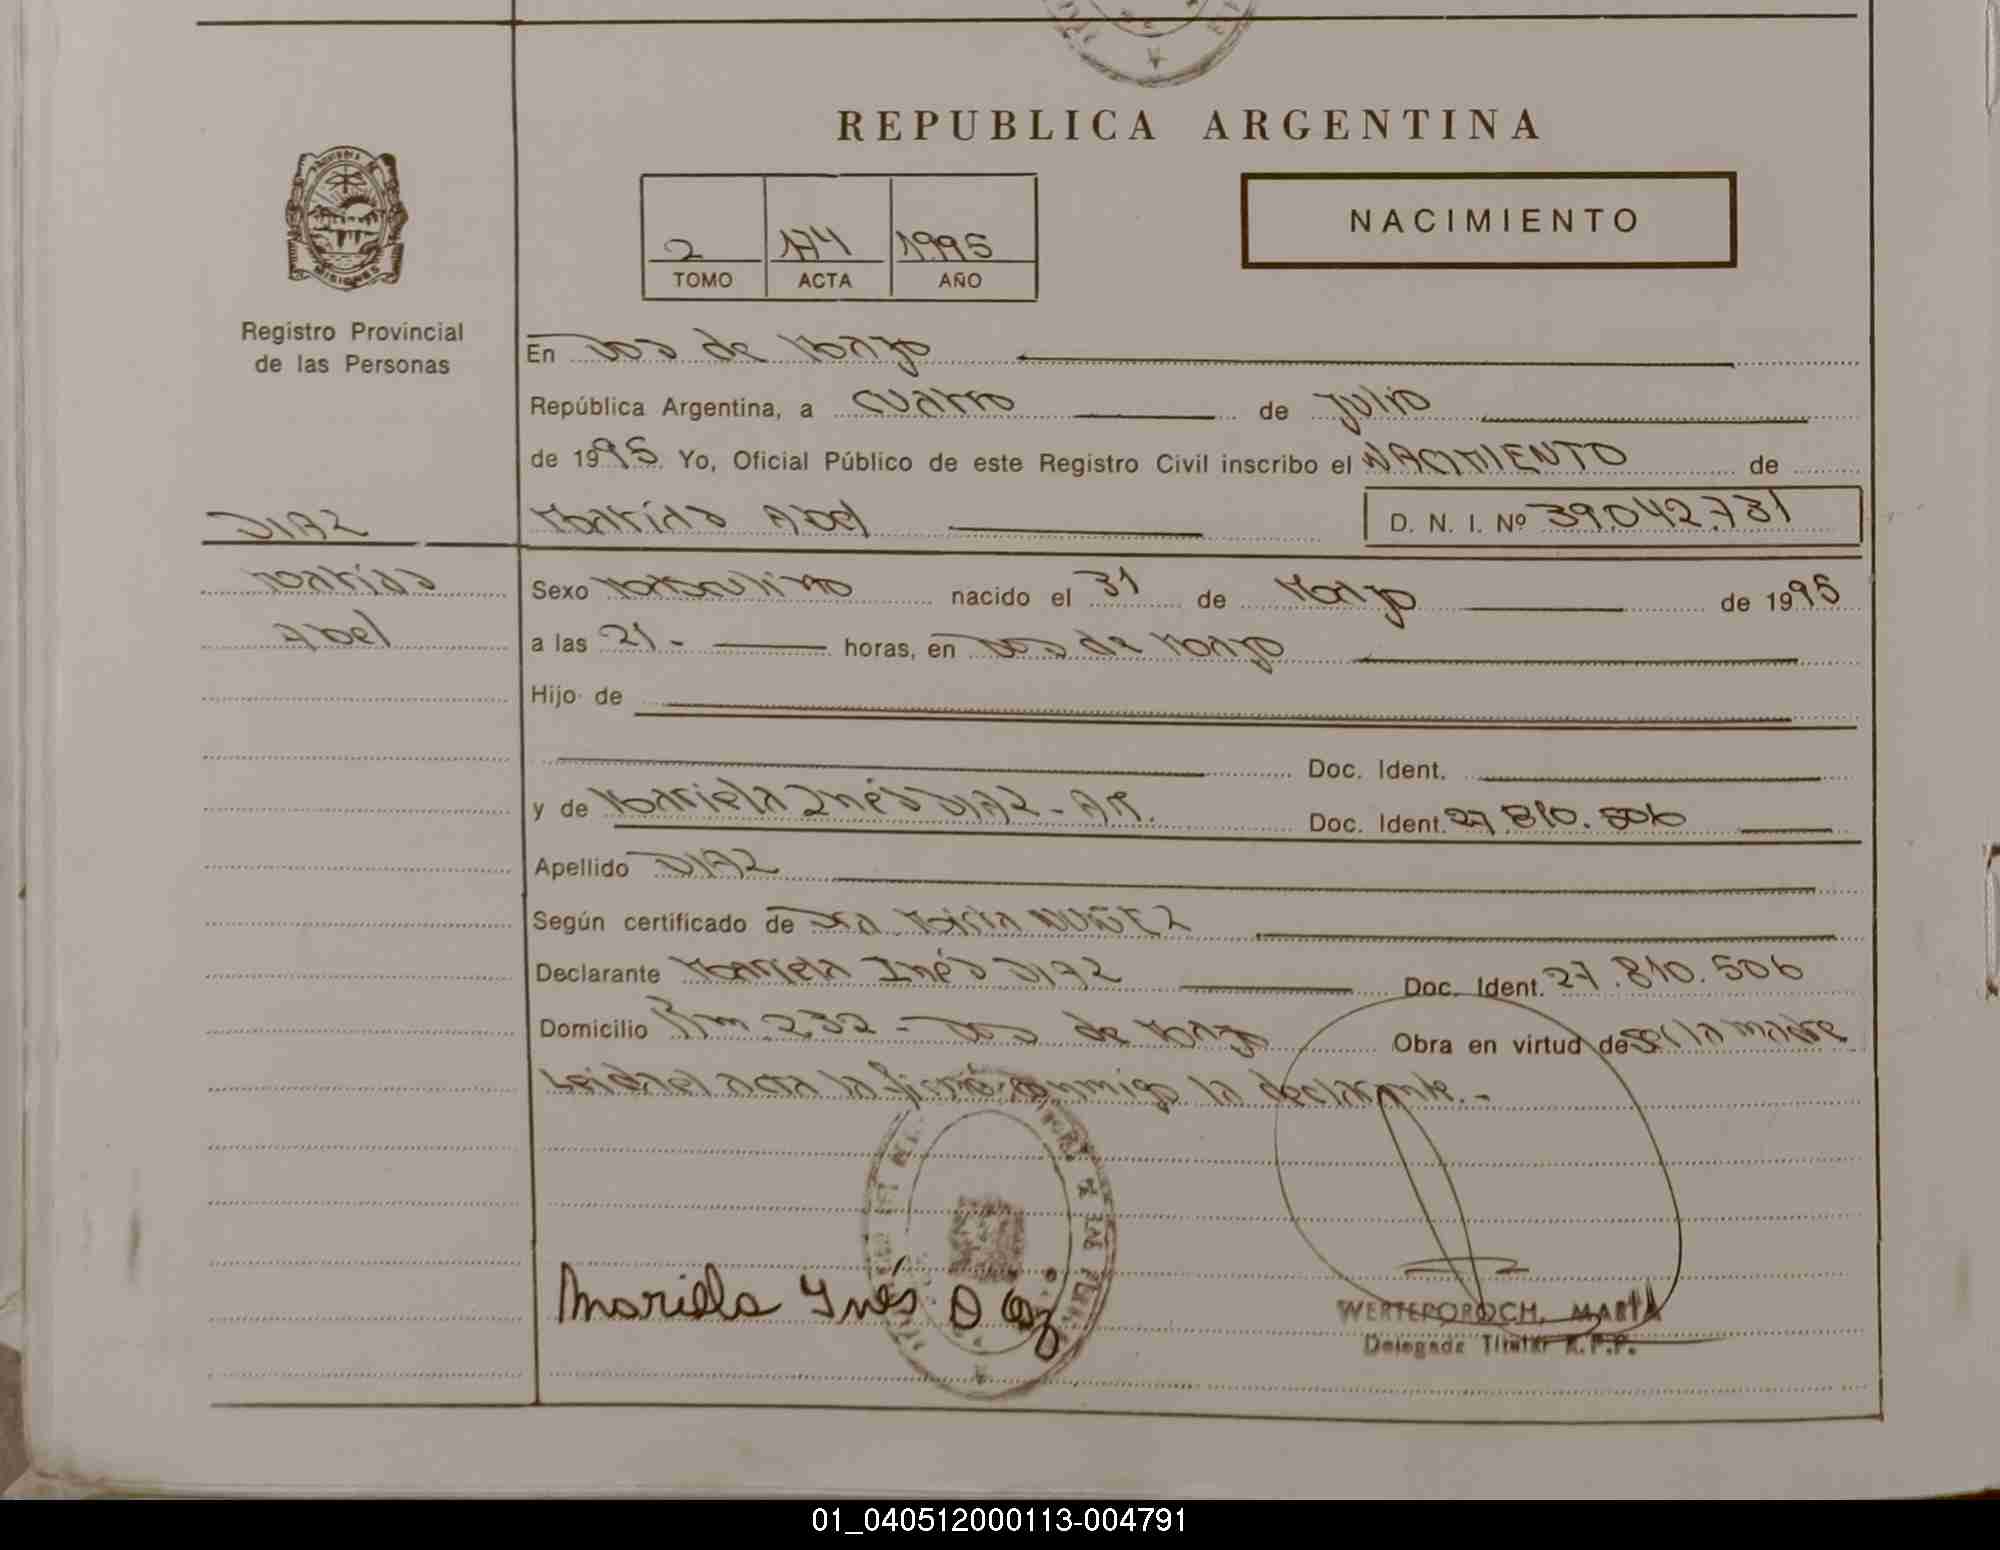 REPUBLICA ARGENTINA
NACIMIENTO
2 174 1995
TOMO ACTA AÑO
MISIONES
Registro Provincial
de las Personas
En Dos de Mayo
República Argentina, a cuatro de Julio
de 1995. Yo, Oficial Público de este Registro Civil inscribo el NACIMIENTO de
DIAZ
Matías Abel D. N. I. Nº 39.042.731
Matías
Abel
Sexo Masculino nacido el 31 de Mayo de 1995
a las 21- horas, en Dos de Mayo
Hijo de
Doc. Ident.
y de Mariela Inés DIAZ - AR. Doc. Ident. 27.810.506
Apellido DIAZ
Según certificado de Dra. María NUÑEZ
Declarante Mariela Inés DIAZ Doc. Ident. 27.810.506
Domicilio Km 232 - Dos de Mayo Obra en virtud de ser la madre
Leida el acta la firmó conmigo la declarante.-
Mariela Inés Díaz
WERTEPOROCH, MARTA
Delegada Titular R.P.P.
01_040512000113-004791